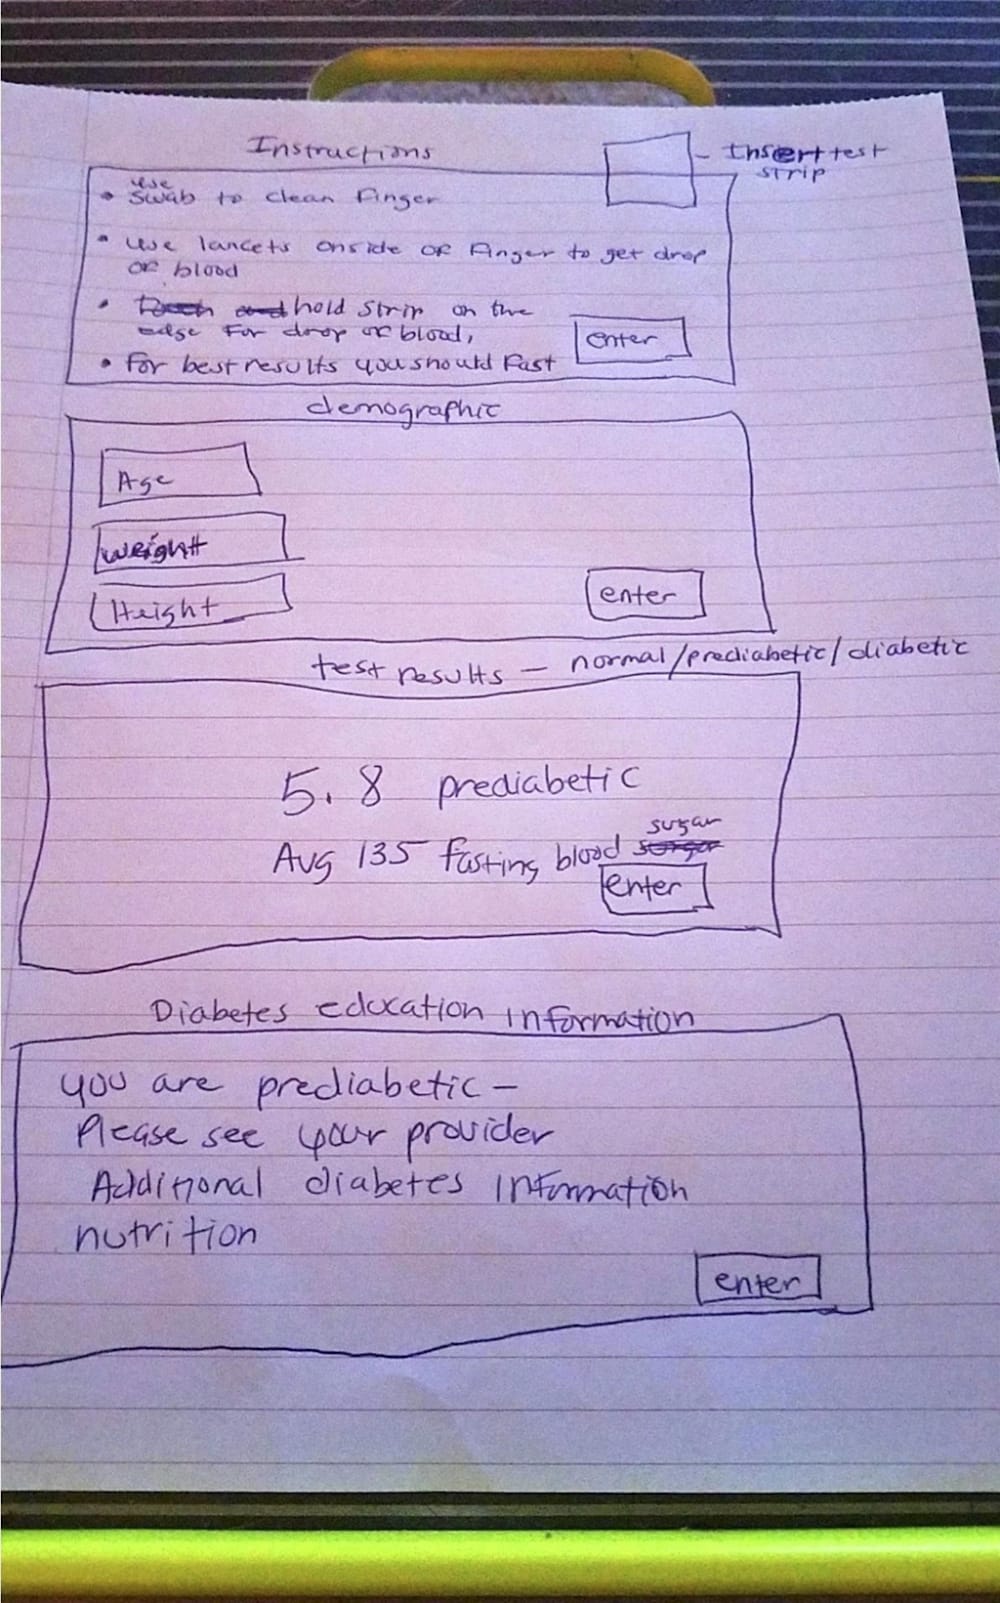 Instructions
- Insert test
strip
• use
swab to clean finger
• use lancets onside of finger to get drop
of blood
• hold strip on the
edge for drop of blood,
enter
• for best results you should fast
demographic
Age
weight
Height
enter
test results - normal/prediabetic/diabetic
5.8 prediabetic
Avg 135 fasting blood sugar
enter
Diabetes education information
you are prediabetic -
Please see your provider
Additional diabetes information
nutrition
enter